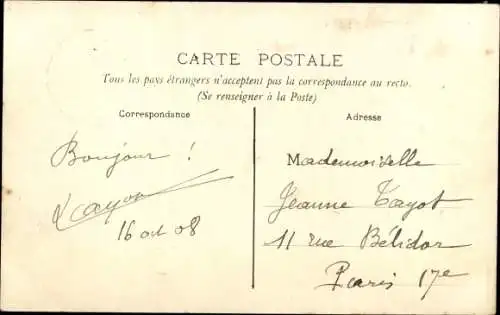 CARTE POSTALE
Tous les pays étrangers n'acceptent pas la correspondance au recto.
(Se renseigner à la Poste)
Correspondance
Adresse
Bonjour !
16 oct 08
Mademoiselle
Jeanne Tayot
11 rue Bélidor
Paris 17e